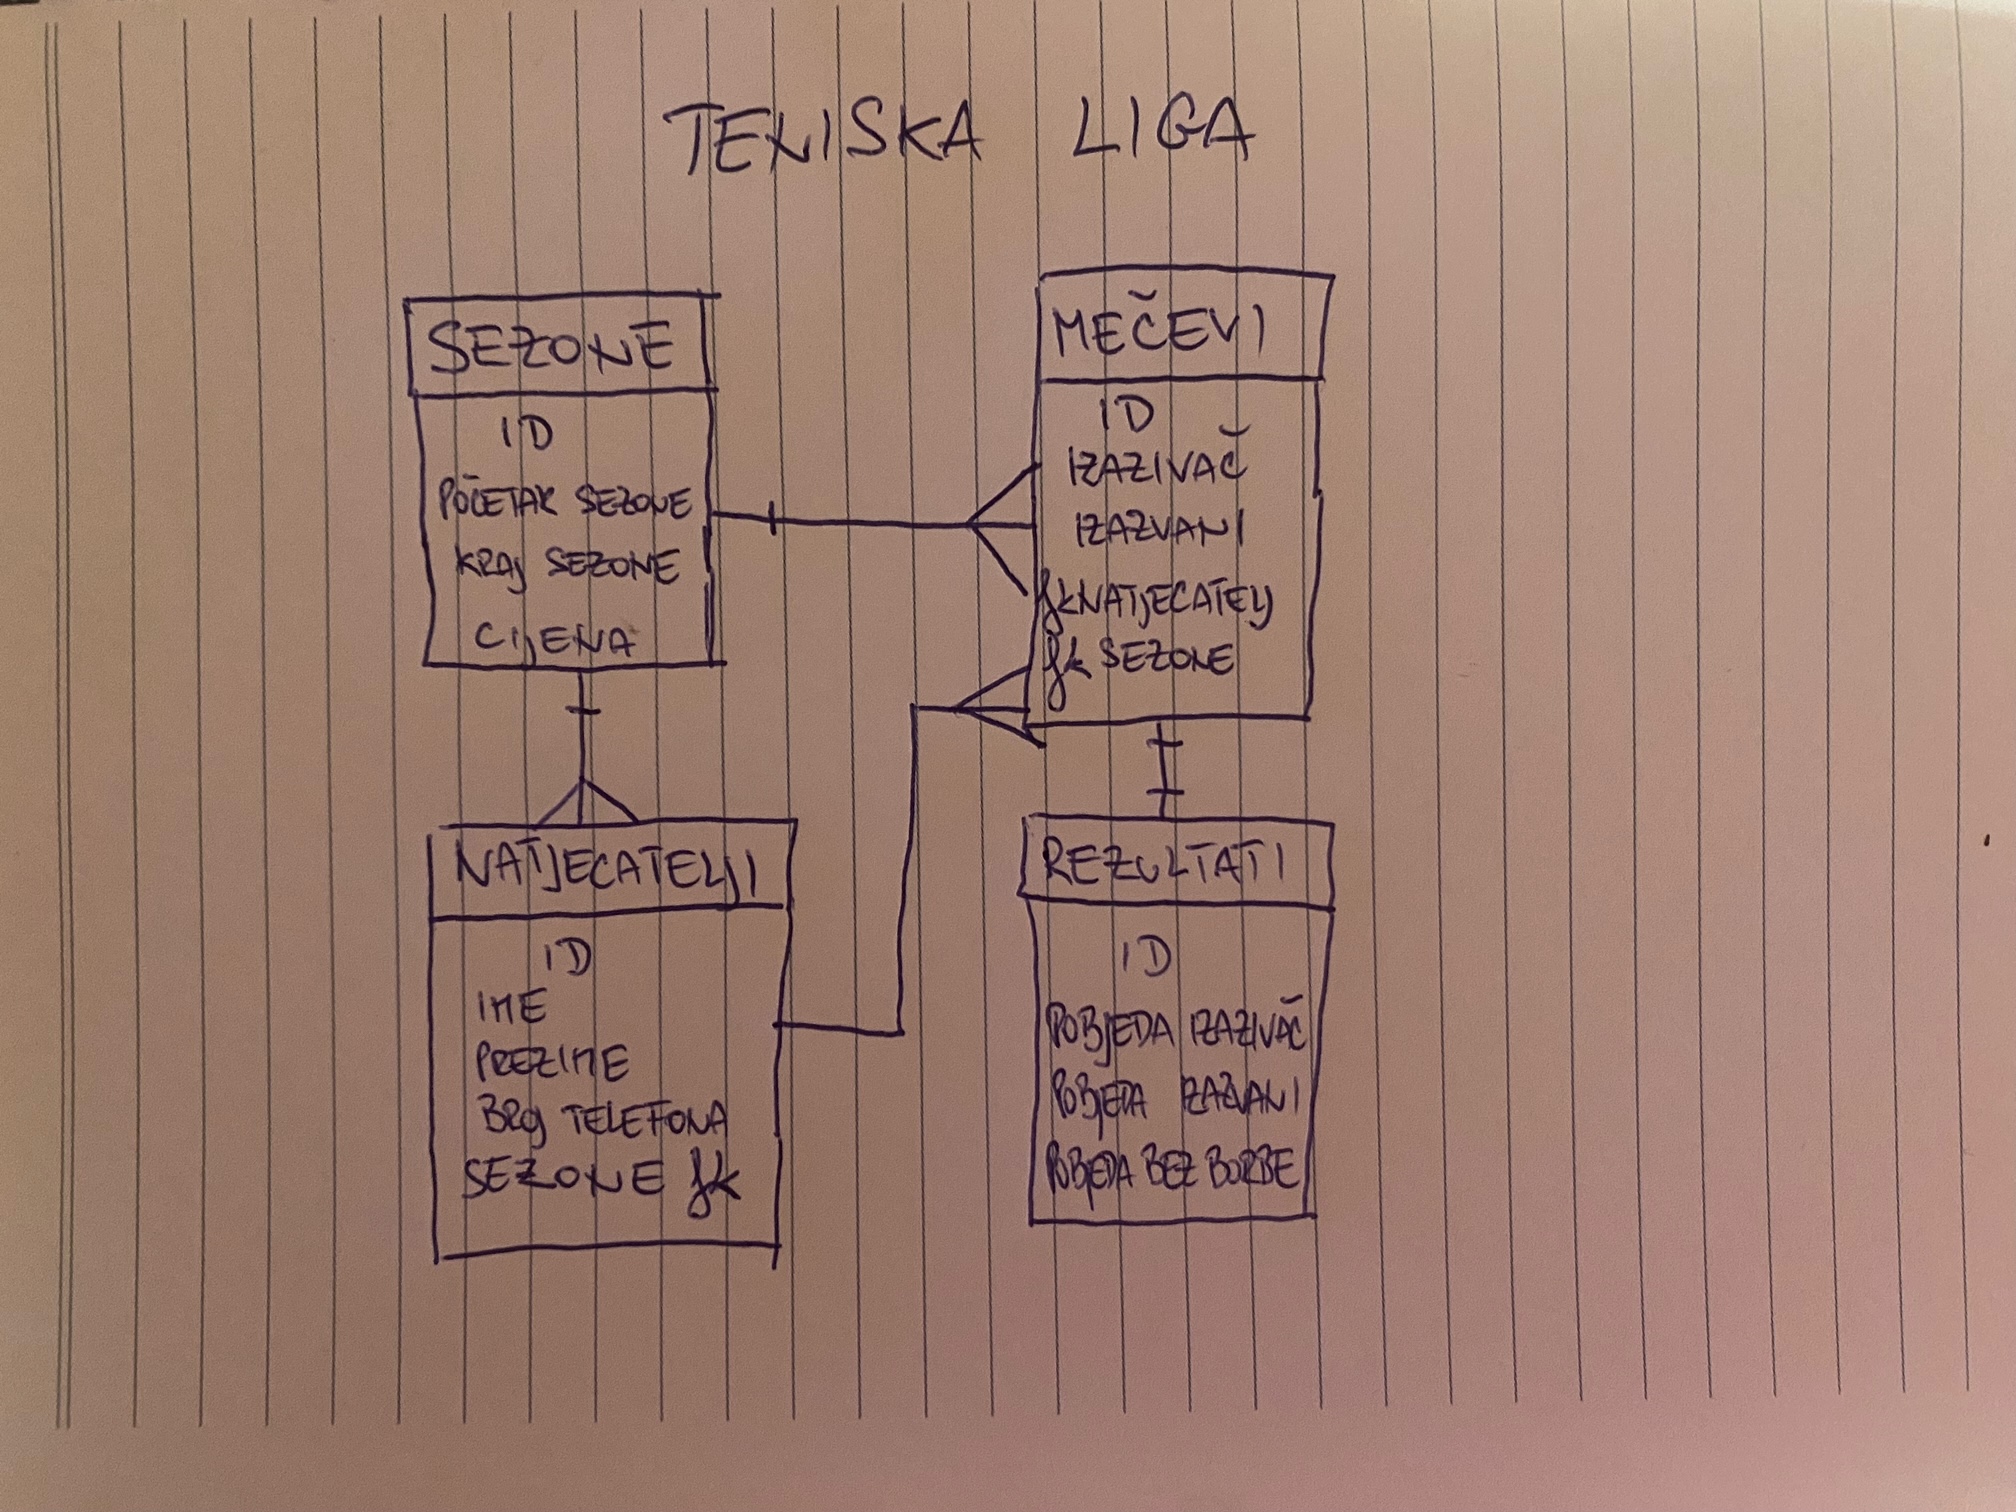 TENISKA LIGA
SEZONE
ID
POČETAK SEZONE
KRAJ SEZONE
CIJENA
MEČEVI
ID
IZAZIVAČ
IZAZVANI
fk NATJECATELJ
fk SEZONE
NATJECATELJI
ID
IME
PREZIME
BROJ TELEFONA
SEZONE fk
REZULTATI
ID
POBJEDA IZAZIVAČ
POBJEDA IZAZVANI
POBJEDA BEZ BORBE